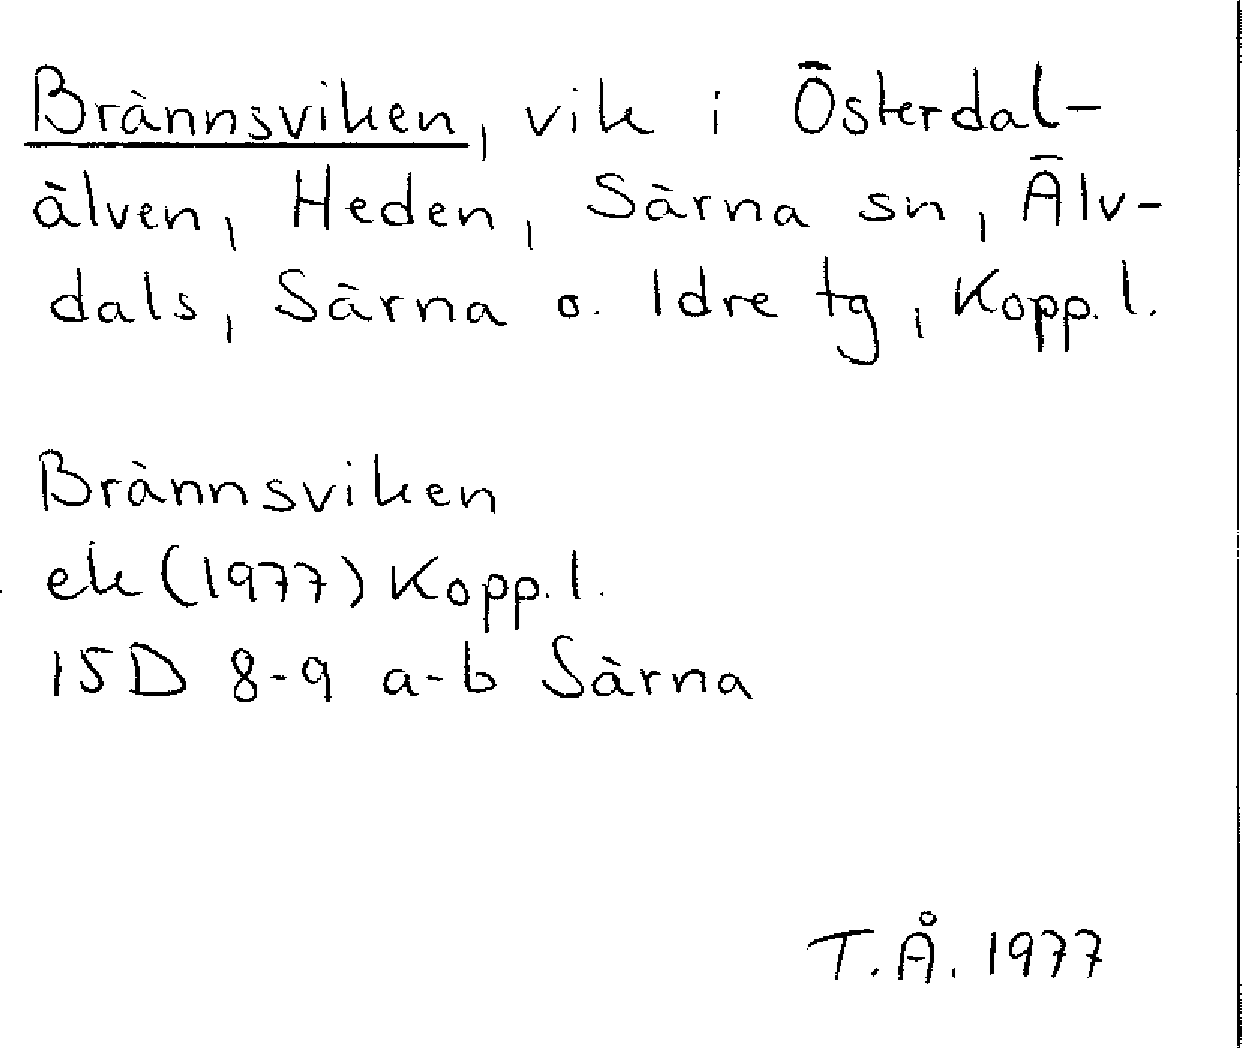 Brännsviken, vik i Österdal-
älven, Heden, Särna sn, Älv-
dals, Särna o. Idre tg, Kopp. l.
Brännsviken
ek (1977) Kopp. l.
15D 8-9 a-b Särna
T. Å. 1977